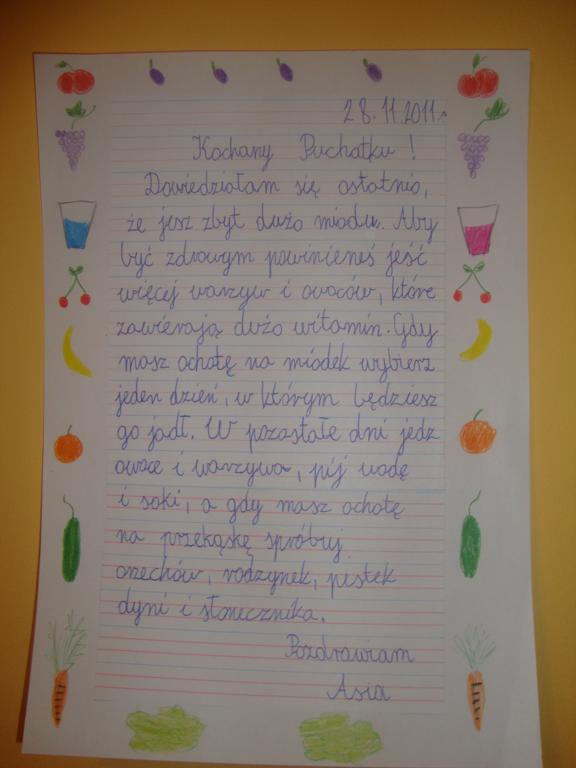 28.11.2011r.
Kochany Puchatku!
Dowiedziałam się ostatnio,
że jesz zbyt dużo miodu. Aby
być zdrowym powinieneś jeść
więcej warzyw i owoców, które
zawierają dużo witamin. Gdy
masz ochotę na miódek wybierz
jeden dzień, w którym będziesz
go jadł. W pozostałe dni jedz
owoce i warzywa, pij wodę
i soki, a gdy masz ochotę
na przekąskę spróbuj
orzechów, rodzynek, pestek
dyni i słonecznika.
Pozdrawiam
Asia